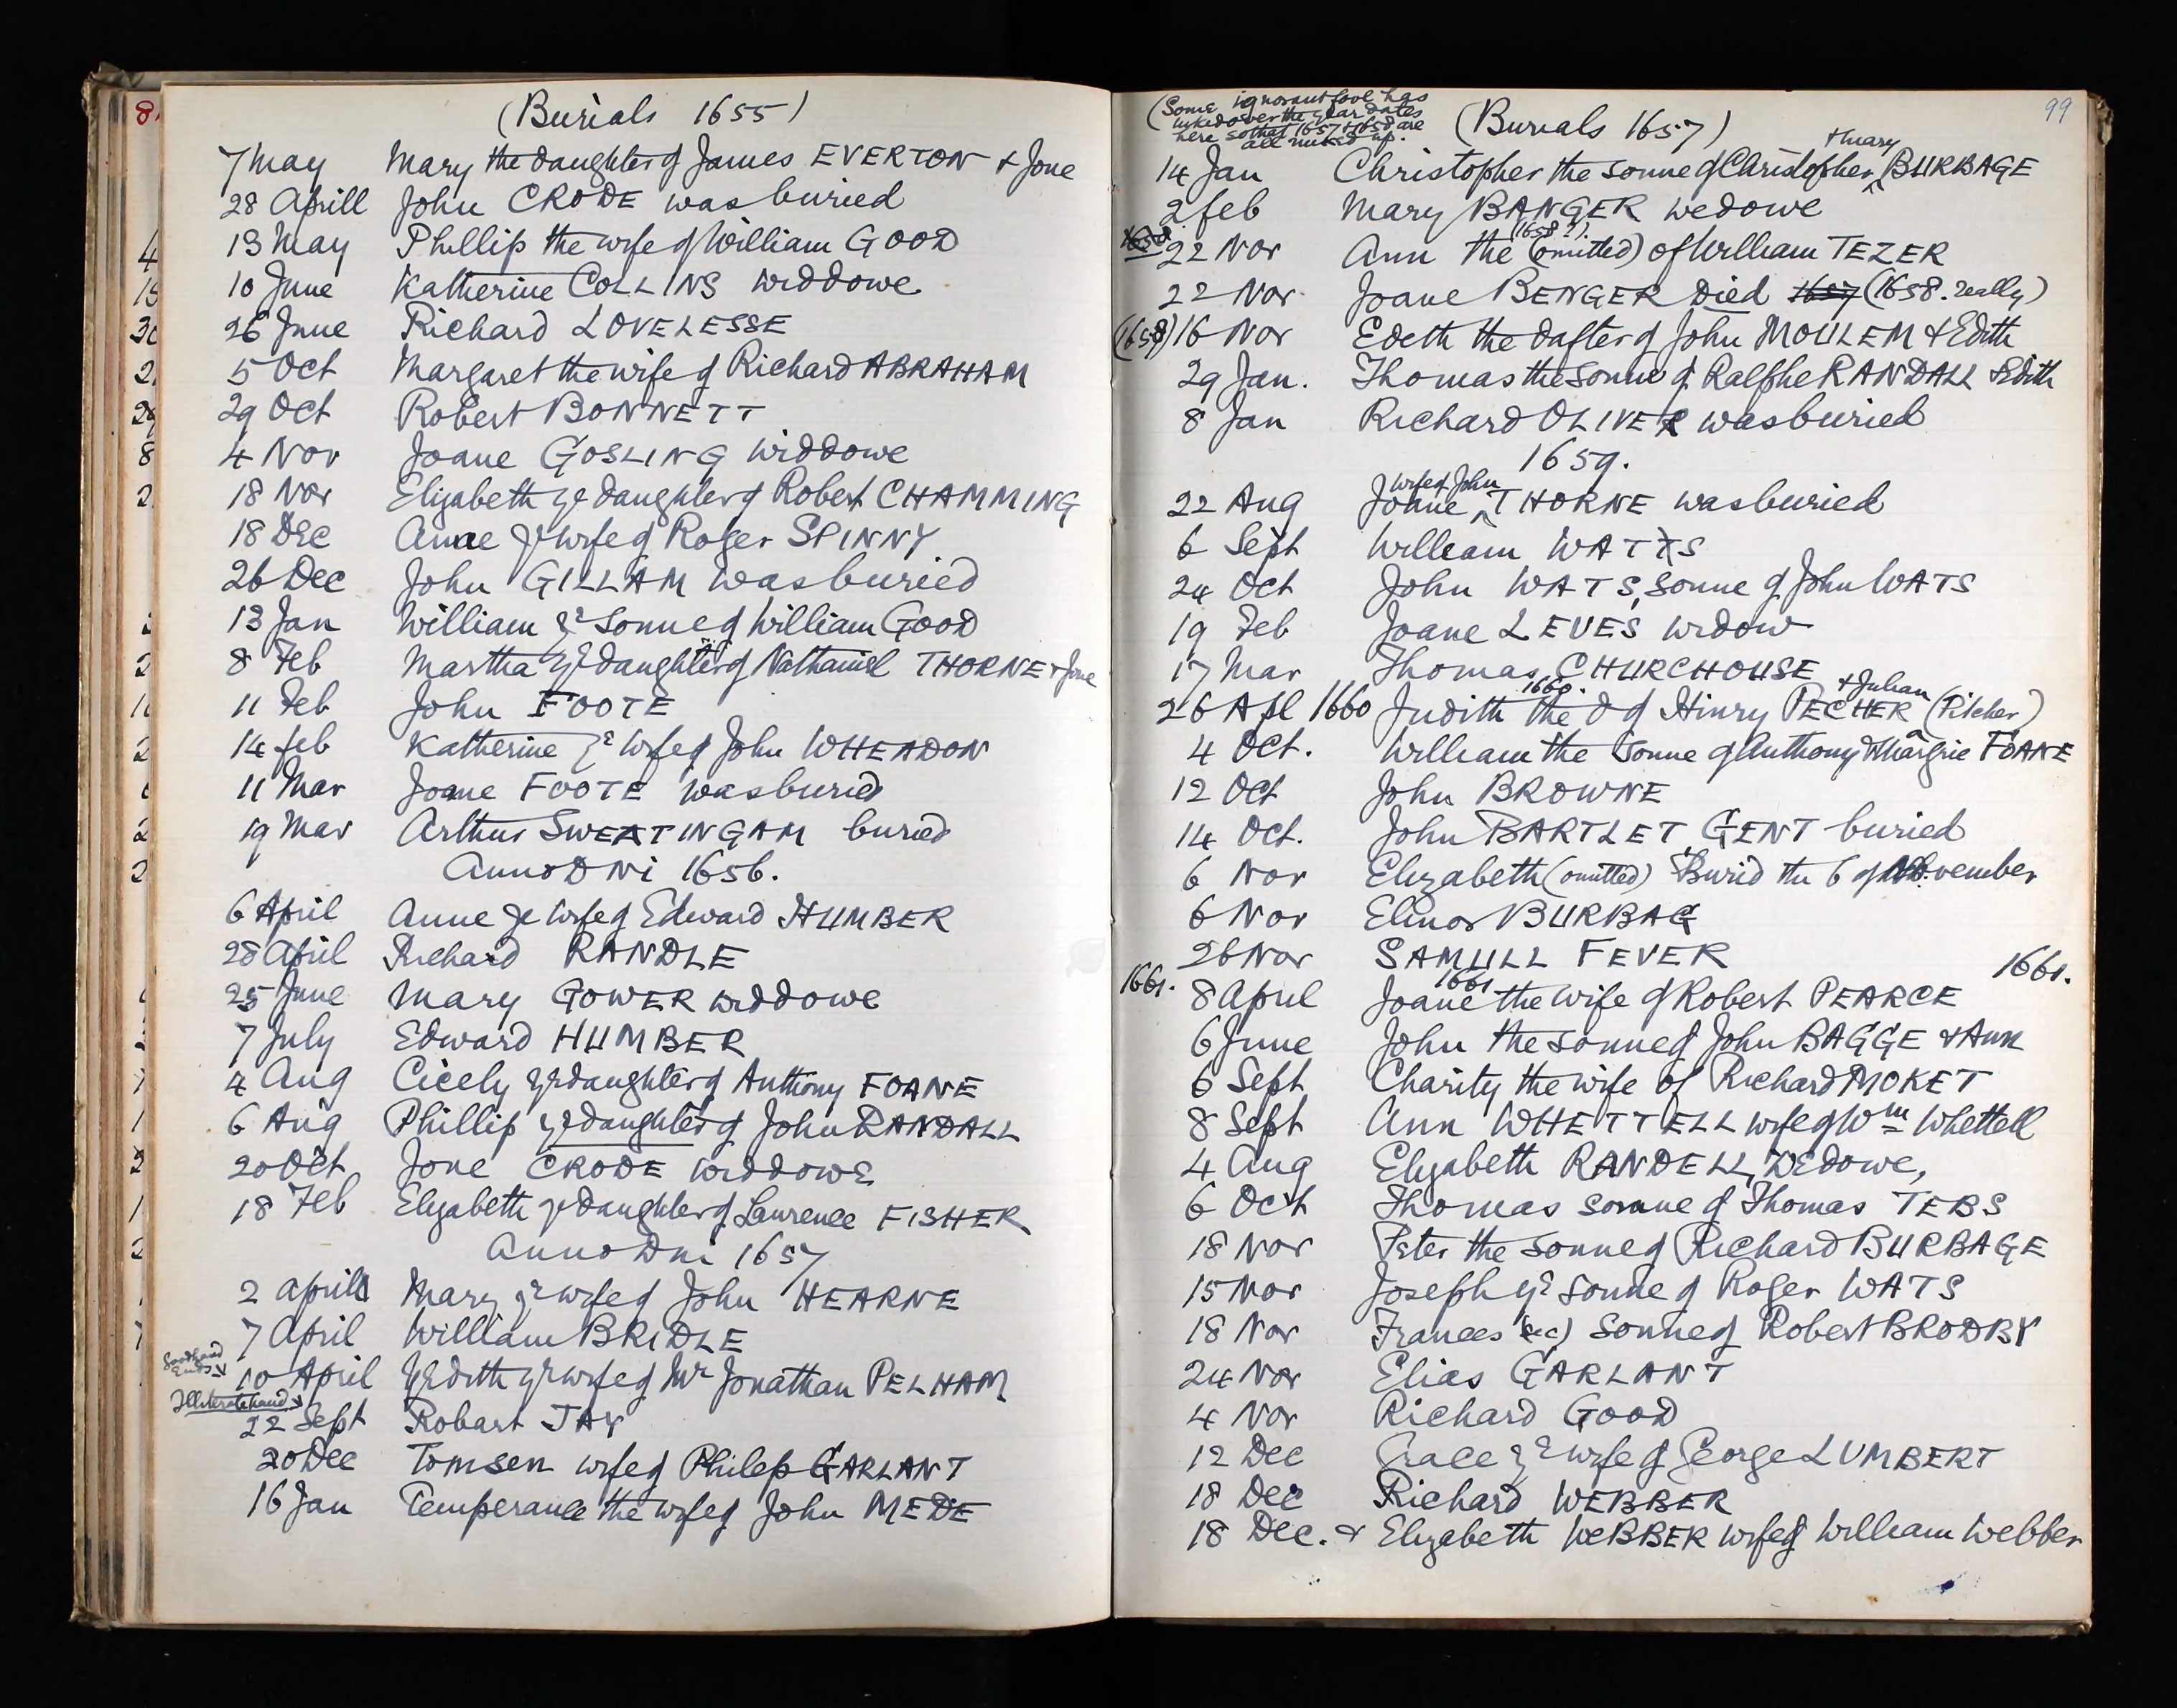 (Burials 1655)
7 May Mary the daughter of James EVERTON & Jone
28 Aprill John CRODE was buried
13 May Phillip the wife of William GOOD
10 June Katherine COLLINS widdowe
26 June Richard LOVELESSE
5 Oct Margaret the wife of Richard ABRAHAM
29 Oct Robert BONNETT
4 Nov Joane GOSLING widdowe
18 Nov Elizabeth ye daughter of Robert CHAMMING
18 Dec Anne ye wife of Roger SPINNY
26 Dec John GILLAM was buried
13 Jan William ye sonne of William GOOD
8 Feb Martha ye daughter of Nathaniel THORNE & Jone
11 Feb John FOOTE
14 feb Katherine ye wife of John WHEADON
11 Mar Joane FOOTE was buried
19 Mar Arthur SWEATINGAM buried
Anno Dni 1656.
6 April Anne ye wife of Edward HUMBER
28 April Richard RANDLE
25 June Mary GOWER widdowe
7 July Edward HUMBER
4 Aug Cicely ye daughter of Anthony FOANE
6 Aug Phillip ye daughter of John RANDALL
20 Oct Jone CRODE widdowe
18 Feb Elizabeth ye daughter of Laurence FISHER
Anno Dni 1657
2 aprill Mary ye wife of John HEARNE
7 April William BRIDLE
Good hand ends
10 April Yedith ye wife of Mr Jonathan PELHAM
Illiterate hand
22 Sept Robart JAY
20 Dec Tomsen wife of Philep GARLANT
16 Jan Temperance the wife of John MEDE
99
(Some ignorant fool has
inked over the year dates
here so that 1657 & 1658 are
all mixed up.
(Burials 1657)
14 Jan Christopher the sonne of Christopher & Mary BURBAGE
2 feb Mary BANGER wedowe
1658
22 Nov Ann the (1658?) (omitted) of William TEZER
22 Nov Joane BENGER Died 1657 (1658. really)
(1658) 16 Nov Edeth the dafter of John MOULEM & Edith
29 Jan. Thomas the sonne of Ralfhe RANDALL & Edith
8 Jan Richard OLIVER was buried
1659.
22 Aug Joane wife of John THORNE was buried
6 Sept William WATTS
24 Oct John WATS, sonne of John WATS
19 Feb Joane LEVES widow
17 Mar Thomas CHURCHOUSE
26 Apl 1660 Judith 1660. the d of Hinry PECHER & Julian (Pitcher)
4 Oct. William the sonne of Anthony & Margrie FOANE
12 Oct John BROWNE
14 Oct. John BARTLET GENT buried
6 Nov Elizabeth (omitted) Burid the 6 of November
6 Nov Elinor BURBAG
26 Nov SAMULL FEVER
1661. 1661.
8 April Joane 1661. the wife of Robert PEARCE
6 June John the sonne of John BAGGE & Ann
6 Sept Charity the wife of Richard MOKET
8 Sept Ann WHETTELL wife of Wm Whettell
4 Aug Elizabeth RANDELL, WEdowe,
6 Oct Thomas sonne of Thomas TEBS
18 Nov Peter the sonne of Richard BURBAGE
15 Nov Joseph ye sonne of Roger WATS
18 Nov Frances (sic) sonne of Robert BRODBY
24 Nov Elias GARLANT
4 Nov Richard GOOD
12 Dec Grace ye wife of George LUMBERT
18 Dec Richard WEBBER
18 Dec. & Elizabeth WEBBER wife of William Webber